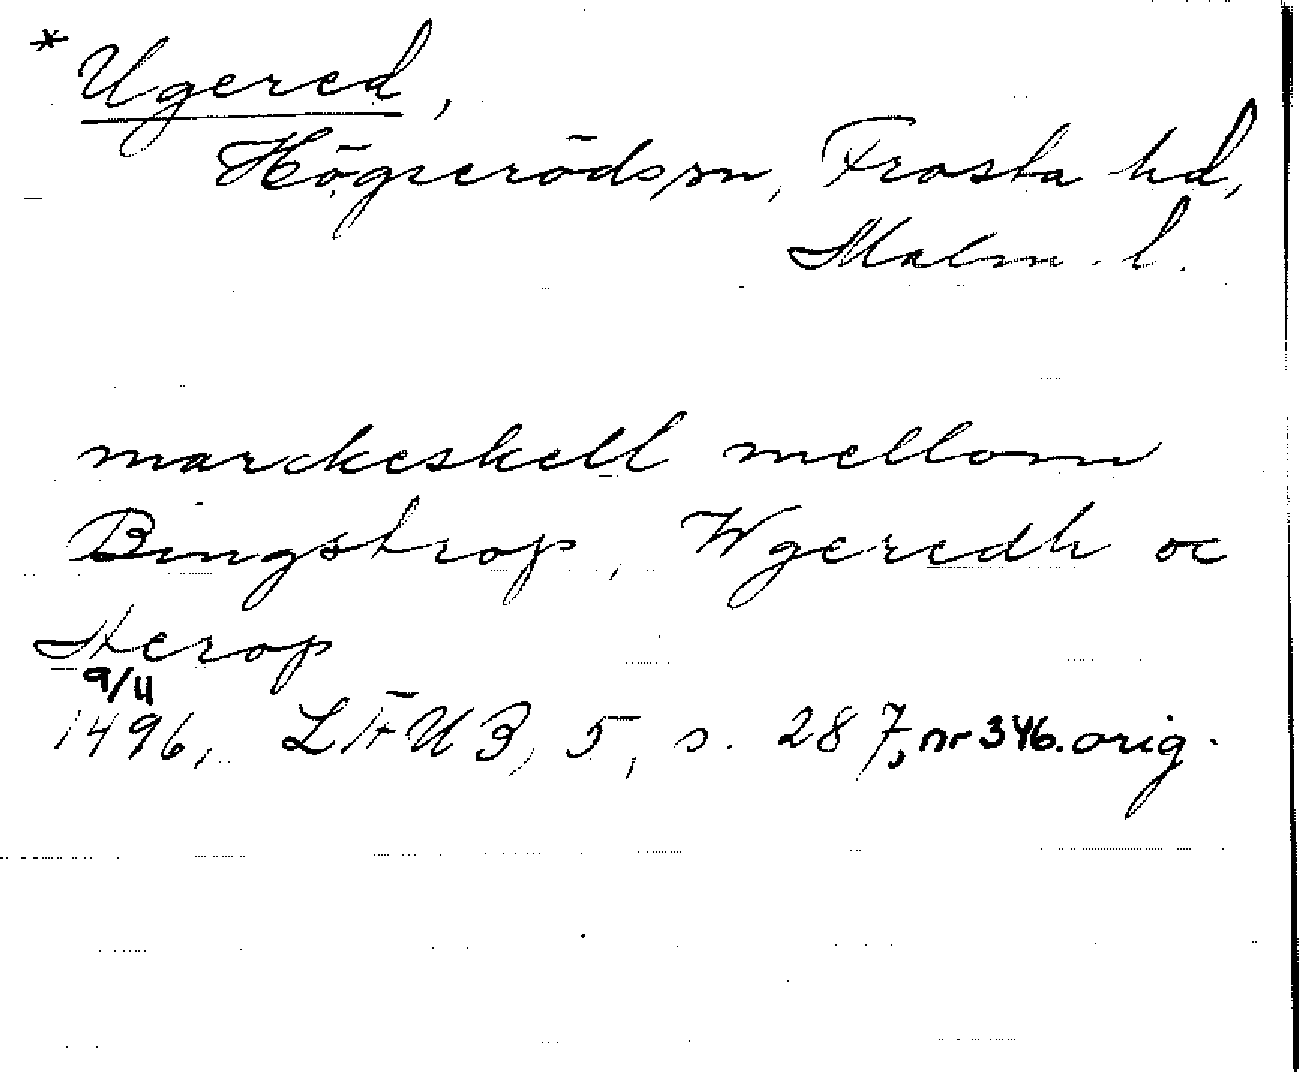 * Ugered,
Högseröds sn, Frosta hd,
Malm. l.
marckeskell mellom
Bingstrop, Wgeredh oc
Axerop
9/11
1496, LÄUB, 5, s. 287, nr 346. orig.